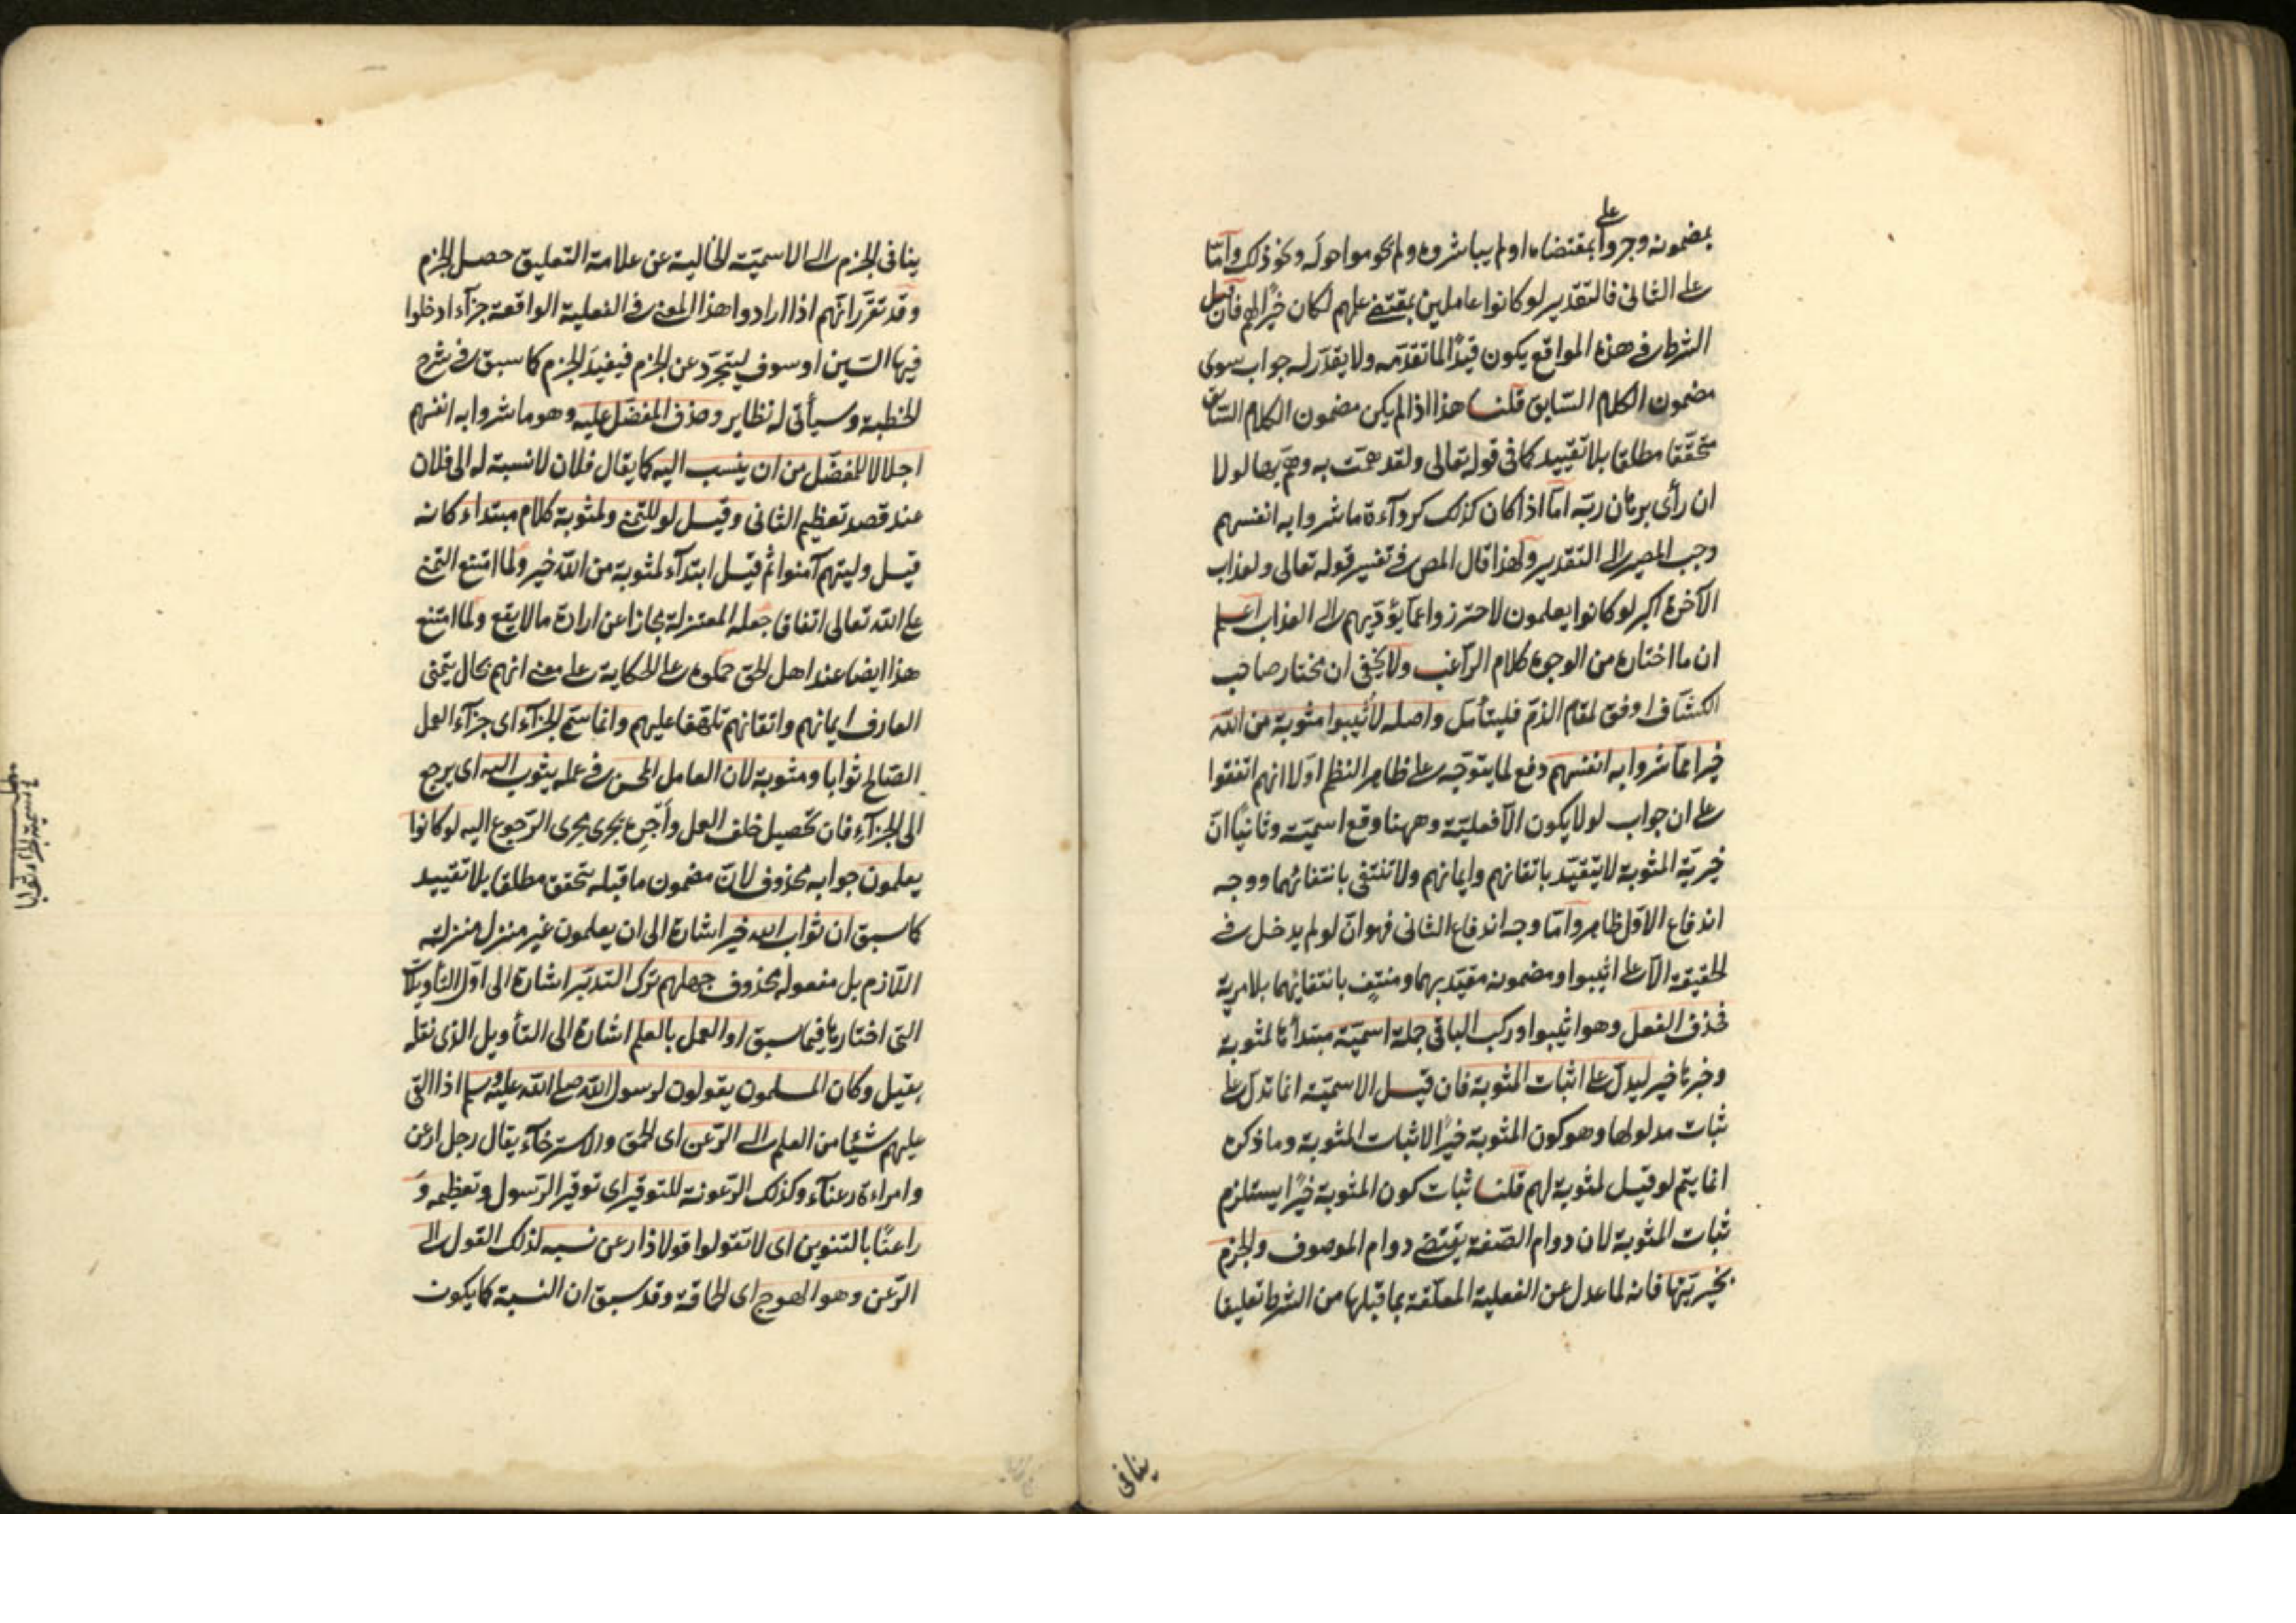 على
بمضمونه وجروا بمقتضاه او لم يباشروه ولم يحوموا حوله ونحو ذلك واما
على الثانى فالتقدير لو كانوا عاملين بمقتضى علمهم لكان خيرًا لهم فان قيل
الشرط فى هذه المواقع يكون قيدًا لما تقدّمه ولا يقدّر له جواب سوى
مضمون الكلام السّابق قلنا هذا اذا لم يكن مضمون الكلام السّابق
متحقّقا مطلقا بلا تقييد كما فى قوله تعالى ولقد همّت به وهمّ بها لولا
ان رأى برهان ربّه امّا اذا كان كذلك كردآءة ما شروا به انفسهم
وجب المصير الى التقدير ولهذا قال المص فى تفسير قوله تعالى ولعذاب
الآخرة اكبر لو كانوا يعلمون لاحترزوا عمّا يؤدّيهم الى العذاب اعلم
ان ما اختاره من الوجوه كلام الرّاغب ولا يخفى ان مختار صاحب
الكشّاف اوفق لمقام الذمّ فليتأمّل واصله لأثيبوا مثوبة من الله
خيرا ممّا شروا به انفسهم دفع لما يتوجّه على ظاهر النظم اوّلا انهم اتفقوا
على ان جواب لو لا يكون الّا فعليّة وههنا وقع اسميّة وثانيًا انّ
خيريّة المثوبة لا يتقيّد باتقانهم وايمانهم ولا تنتفى بانتفائهما ووجه
اندفاع الاوّل ظاهر وامّا وجه اندفاع الثانى فهو انّ لو لم يدخل فى
الحقيقة الّا على اثيبوا ومضمونه مقيّد بهما ومنتفٍ بانتفائهما بلا مرية
فحذف الفعل وهو اثيبوا وركب الباقى جملة اسميّة مبتدأها لمثوبة
وخبرها خير ليدلّ على اثبات المثوبة فان قيل الاسميّة انما تدلّ على
ثبات مدلولها وهو كون المثوبة خيرًا لا ثبات المثوبة وما ذكره
انما يتم لو قيل لمثوبة لهم قلنا ثبات كون المثوبة خيرًا يستلزم
ثبات المثوبة لان دوام الصّفة يقتضى دوام الموصوف والجزم
بخيريّتها فانه لما عدل عن الفعلية المعلّقة بما قبلها من الشرط تعليقا
ينافى
ينافى الجزم الى الاسميّة الخالية عن علامة التعليق حصل الجزم
وقد تقرّر انّهم اذا ارادوا هذا المعنى فى الفعلية الواقعة جزآء ادخلوا
فيها السّين او سوف ليتجرّد عن الجزم فيفيد الجزم كما سبق فى شرح
الخطبة وسيأتى له نظاير وحذف المفضّل عليه وهو ما شروا به انفسهم
اجلالا للمفضّل من ان ينسب اليه كما يقال فلان لا نسبة له الى فلان
عند قصد تعظيم الثانى وقيل لو للتمنى ولمثوبة كلام مبتداء كانه
قيل وليتهم آمنوا ثم قيل ابتدآء لمثوبة من الله خير ولما امتنع التمنى
على الله تعالى اتفاقا جعله المعتزلة مجازا عن ارادة ما لا يقع ولما امتنع
هذا ايضا عند اهل الحق حملوه على الحكاية على معنى انهم بحال يتمنى
العارف ايمانهم واتقانهم تلهّفا عليهم وانما سمّى الجزآء اى جزآء العمل
الصّالح ثوابا ومثوبة لان العامل المحسن فى عمله يثوب اليه اى يرجع
الى الجزآء فان تحصيل خلف العمل وأجره يجرى مجرى الرّجوع اليه لو كانوا
يعلمون جوابه محذوف لانّ مضمون ما قبله متحقق مطلقا بلا تقييد
كما سبق ان ثواب الله خير اشارة الى ان يعلمون غير منزل منزلة
اللّازم بل مفعوله محذوف جهلهم ترك التدبّر اشارة الى اوّل التأويلات
التى اختارها فيما سبق او العمل بالعلم اشارة الى التأويل الذى نقله
بقيل وكان المسلمون يقولون لرسول الله صلى الله عليه وسلم اذا القى
عليهم شيئا من العلم الى الرّعن اى الحمق والاسترخآء يقال رجل ارعن
وامراءة رعنآء وكذلك الرّعونة للتوقير اى توقير الرّسول وتعظيمه و
راعنًا بالتنوين اى لا تقولوا قولا ذا رعن نسبه لذلك القول الى
الرّعن وهو الهوج اى الحماقة وقد سبق ان النسبة كما يكون